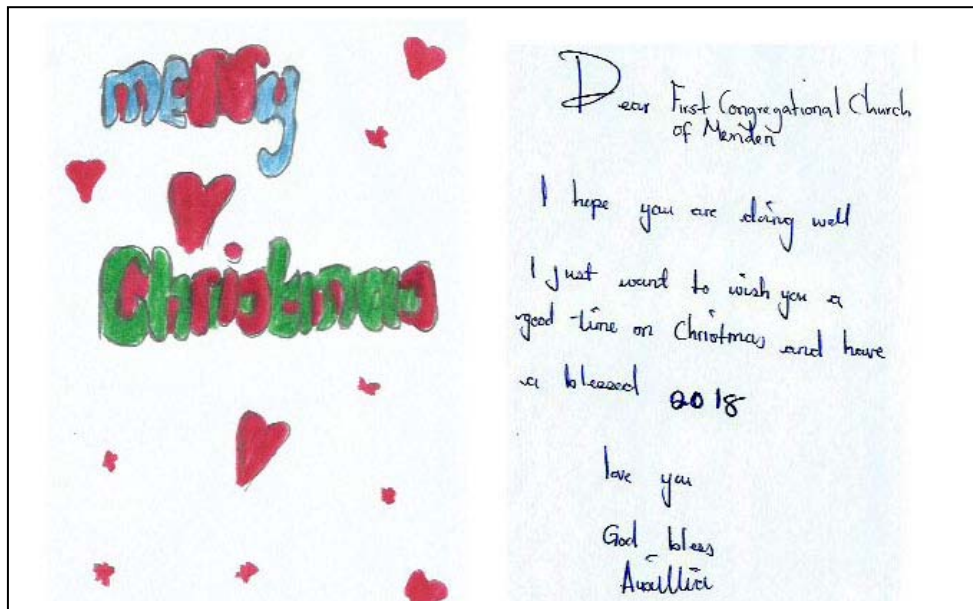 merry
Christmas
Dear First Congregational Church
of Meriden
I hope you are doing well
I just want to wish you a
good time on Christmas and have
a blessed 2018
love you
God bless